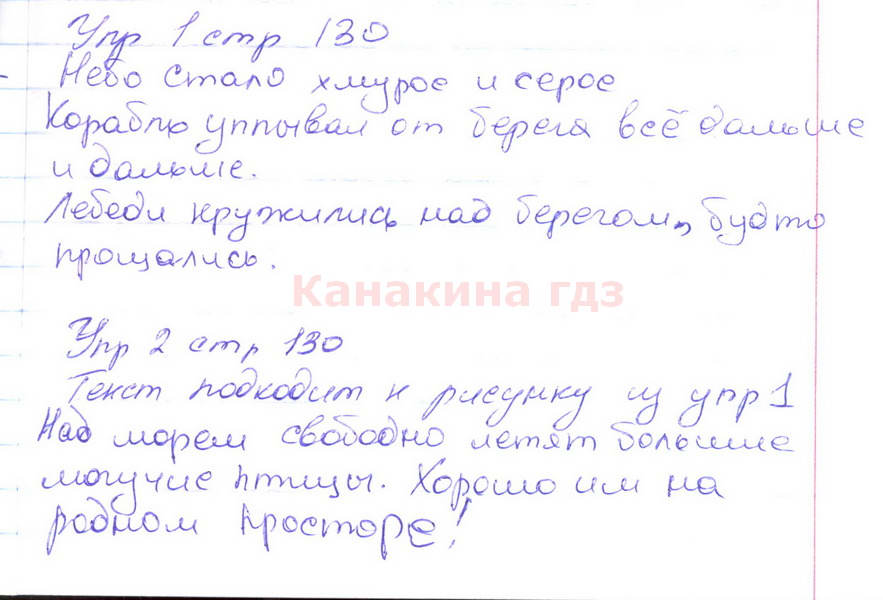 Упр 1 стр 130
Небо стало хмурое и серое
Корабль уплывал от берега всё дальше
и дальше.
Лебеди кружились над берегом, будто
прощались.
Канакина гдз
Упр 2 стр 130
Текст подходит к рисунку из упр 1
Над морем свободно летят большие
могучие птицы. Хорошо им на
родном просторе!